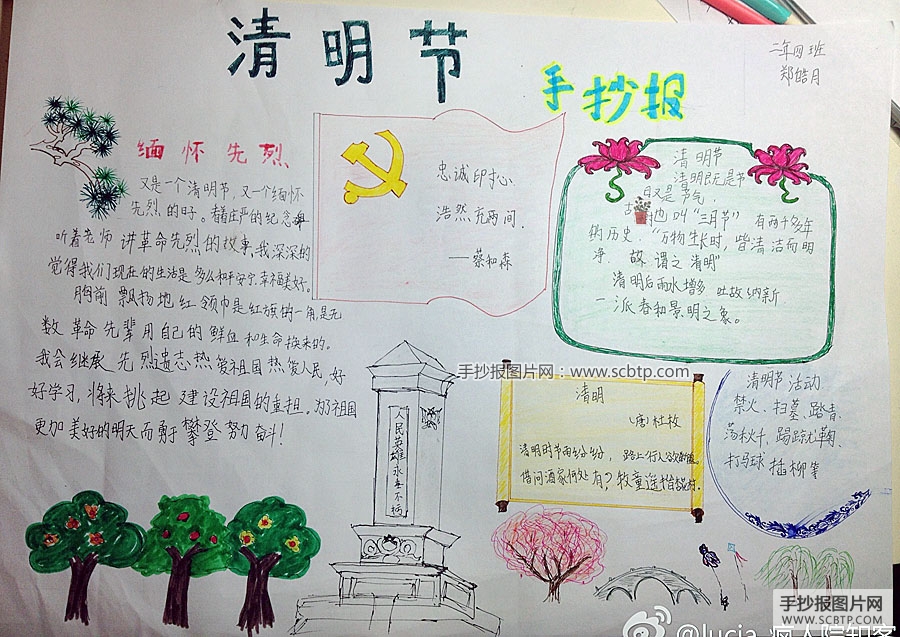 清明节
手抄报
二年四班
郑皓月
缅怀先烈
又是一个清明节,又一个缅怀
先烈的日子。看着庄严的纪念碑
听着老师讲革命先烈的故事,我深深的
觉得我们现在的生活是多么和平安宁幸福美好。
胸前飘扬地红领巾是红旗的一角是无
数革命先辈用自己的鲜血和生命换来的。
我会继承先烈遗志热爱祖国热爱人民,好
好学习,将来挑起建设祖国的重担,为祖国
更加美好的明天而勇于攀登努力奋斗!
忠诚印寸心
浩然充两间
——蔡和森
清明节
清明既是节
日又是节气,
也叫“三月节”有两千多年
的历史。“万物生长时,皆清洁而明
净,故谓之清明”
清明后雨水增多 吐故纳新
一派春和景明之象。
手抄报图片网:www.scbtp.com
清明
(唐)杜牧
清明时节雨纷纷,路上行人欲断魂。
借问酒家何处有?牧童遥指杏花村。
清明节活动
禁火、扫墓、踏青、
荡秋千、蹴鞠、
打马球 插柳等
人民英雄永垂不朽
手抄报图片网
WWW.SCBTP.COM
@lucia_疯人院知客